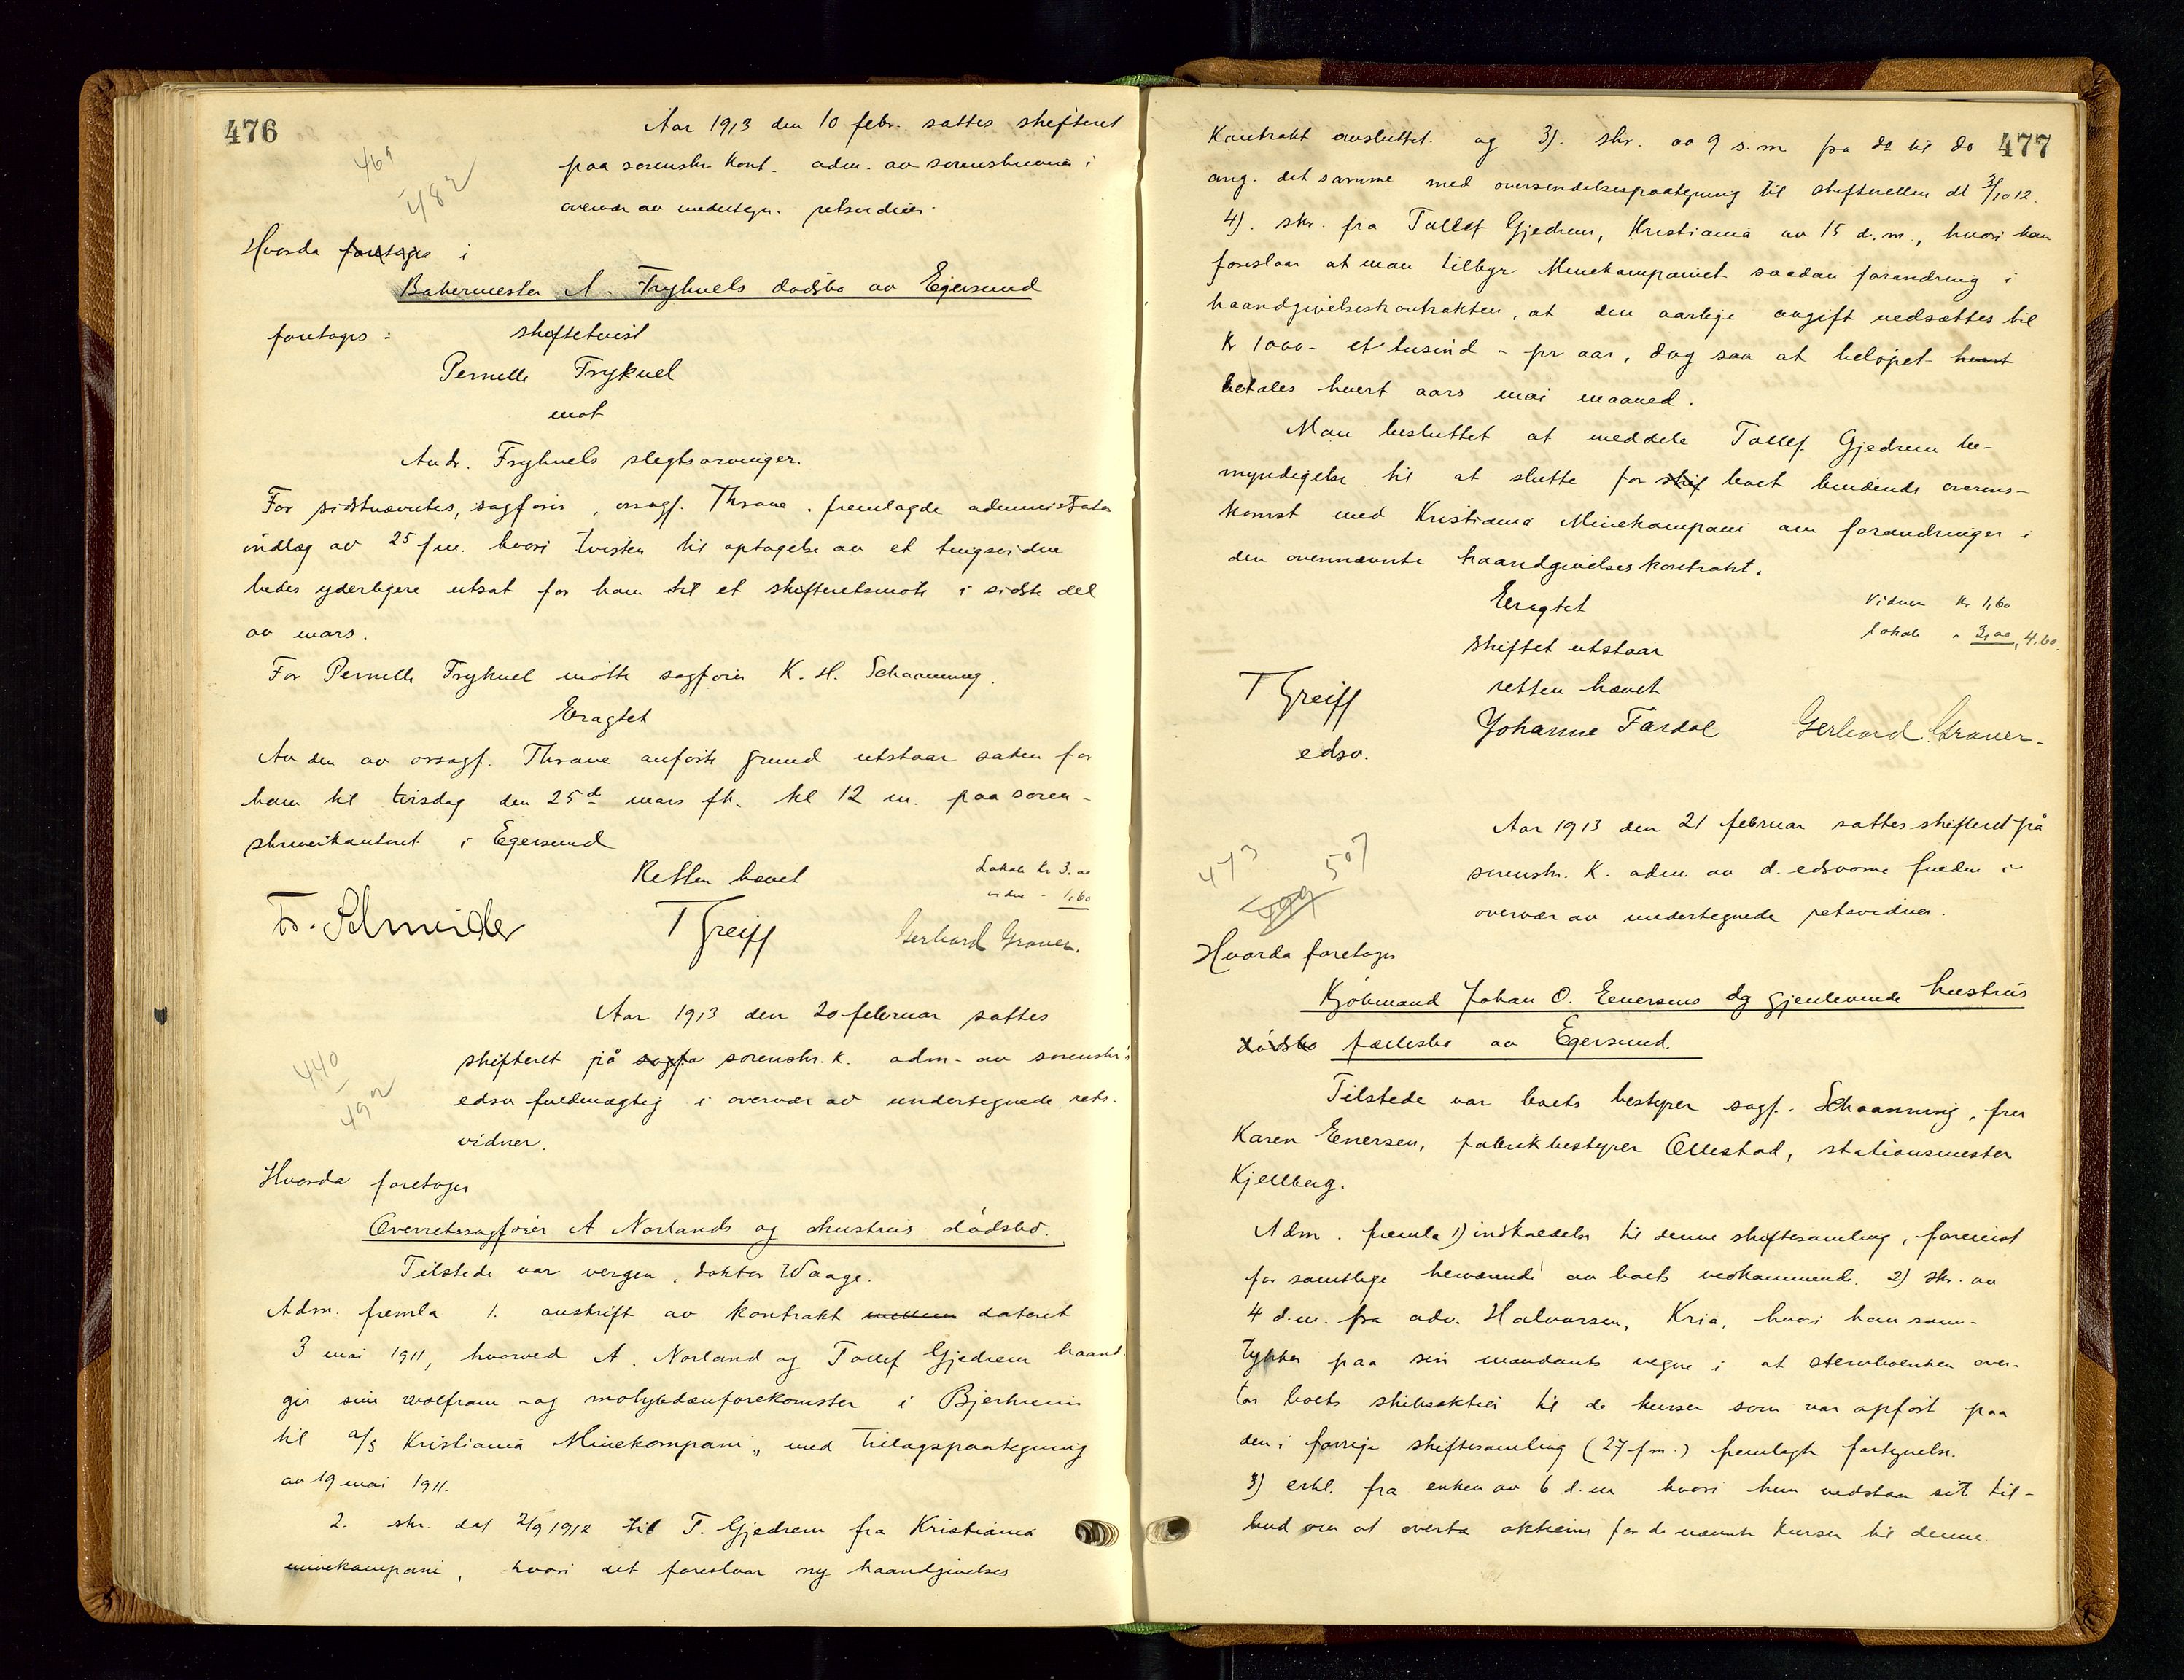 476
Aar 1913 den 10 febr. sattes skifteret
469
482
paa sorenskr kont. adm. av sorenskriveren i
overvær av undertegn. retsvidner.
Hvorda foretoges i
Bakermester A. Frykvels dødsbo av Egersund
foretoges: skiftetvist
Pernelle Frykvel
mot
Andr. Frykvels slegtsarvinger.
For sidstnævntes, sagfører, orsagf. Thrane. fremlagde administrator
indlæg av 25 f.m. hvori tvisten til optagelse av et tingsvidne
bedes yderligere utsat for ham til et skifteretsmøte i sidste del
av mars.
For Pernelle Frykvel møtte sagfører K. H. Schaanning.
Eragtet
Av den av orsagf. Thrane anførte grund utstaar saken for
ham til tirsdag den 25de mars fk. kl 12 m. paa soren-
skriverkontoret i Egersund
Retten hævet
Lokale Kr 3.00
vidner - 1,60
Fr. Schneider T Greiff Gerhard Graver.
Aar 1913 den 20 februar sattes
440
492
skifteret på sorenskr. k. adm. av sorenskr's
edsv fuldmægtig i overvær av undertegnede rets-
vidner.
Hvorda foretoges
Overretssagfører A Norlands og hustrus dødsbo.
Tilstede var vergen, doktor Waage.
Adm. fremla 1. avskrift av kontrakt mellem dateret
3 mai 1911, hvorved A. Norland og Tollef Gjedrem haand-
gir sine wolfram- og molybdænforekomster i Bjerkreim
til A/S Kristiania Minekompani, med tillægspaategning
av 19 mai 1911.
2. skr. dat 2/9 1912 til T. Gjedrem fra Kristiania
minekompani, hvori det foreslaar ny haandgivelses
477
Kontrakt avsluttet. og 3). skr. av 9 s.m fra do til do
ang. det samme med oversendelsespaategning til skifteretten dt 3/10 12.
4). skr. fra Tollef Gjedrem, Kristiania av 15 d.m., hvori han
foreslaar at man tilbyr Minekompaniet saadan forandring i
haandgivelseskontrakten, at den aarlige avgift nedsættes til
Kr 1000- et tusind - pr aar, dog saa at beløpet hvert
betales hvert aars mai maaned.
Man besluttet at meddele Tollef Gjedrem be-
myndigelse til at slutte for skif boet bindende overens-
komst med Kristiania Minekompani om forandringer i
den ovennævnte haandgivelseskontrakt.
Eragtet
Vidner Kr 1,60
lokale " 3,00, 4,60.
skiftet utstaar
retten hævet
T Greiff
edsv.
Johanne Fardal Gerhard Graver.
Aar 1913 den 21 februar sattes skifteret på
473
507
499
sorenskr. K. adm. av d. edsvorne fuldm i
overvær av undertegnede retsvidner.
Hvorda foretoges
Kjøbmand Johan O. Enersens og gjenlevende hustrus
dødsbo fællesbo av Egersund.
Tilstede var boets bestyrer sagf. Schaanning, fru
Karen Enersen, fabrikbestyrer Ollestad, stationsmester
Kjellberg.
Adm. fremla 1) indkaldelse til denne skiftesamling, forevist
for samtlige herværende av boets vedkommende. 2) skr. av
4 d.m. fra adv. Halvorsen, Kria, hvori han sam-
tykker paa sin mandants vegne i at stervboenken over-
tar boets skibsaktier til de kurser som var opført paa
den i forrige skiftesamling (27 f.m.) fremlagte fortegnelse.
3) erkl. fra enken av 6 d.m hvori hun vedstaar sit til-
bud om at overta aktierne for de nævnte kurser til denne.